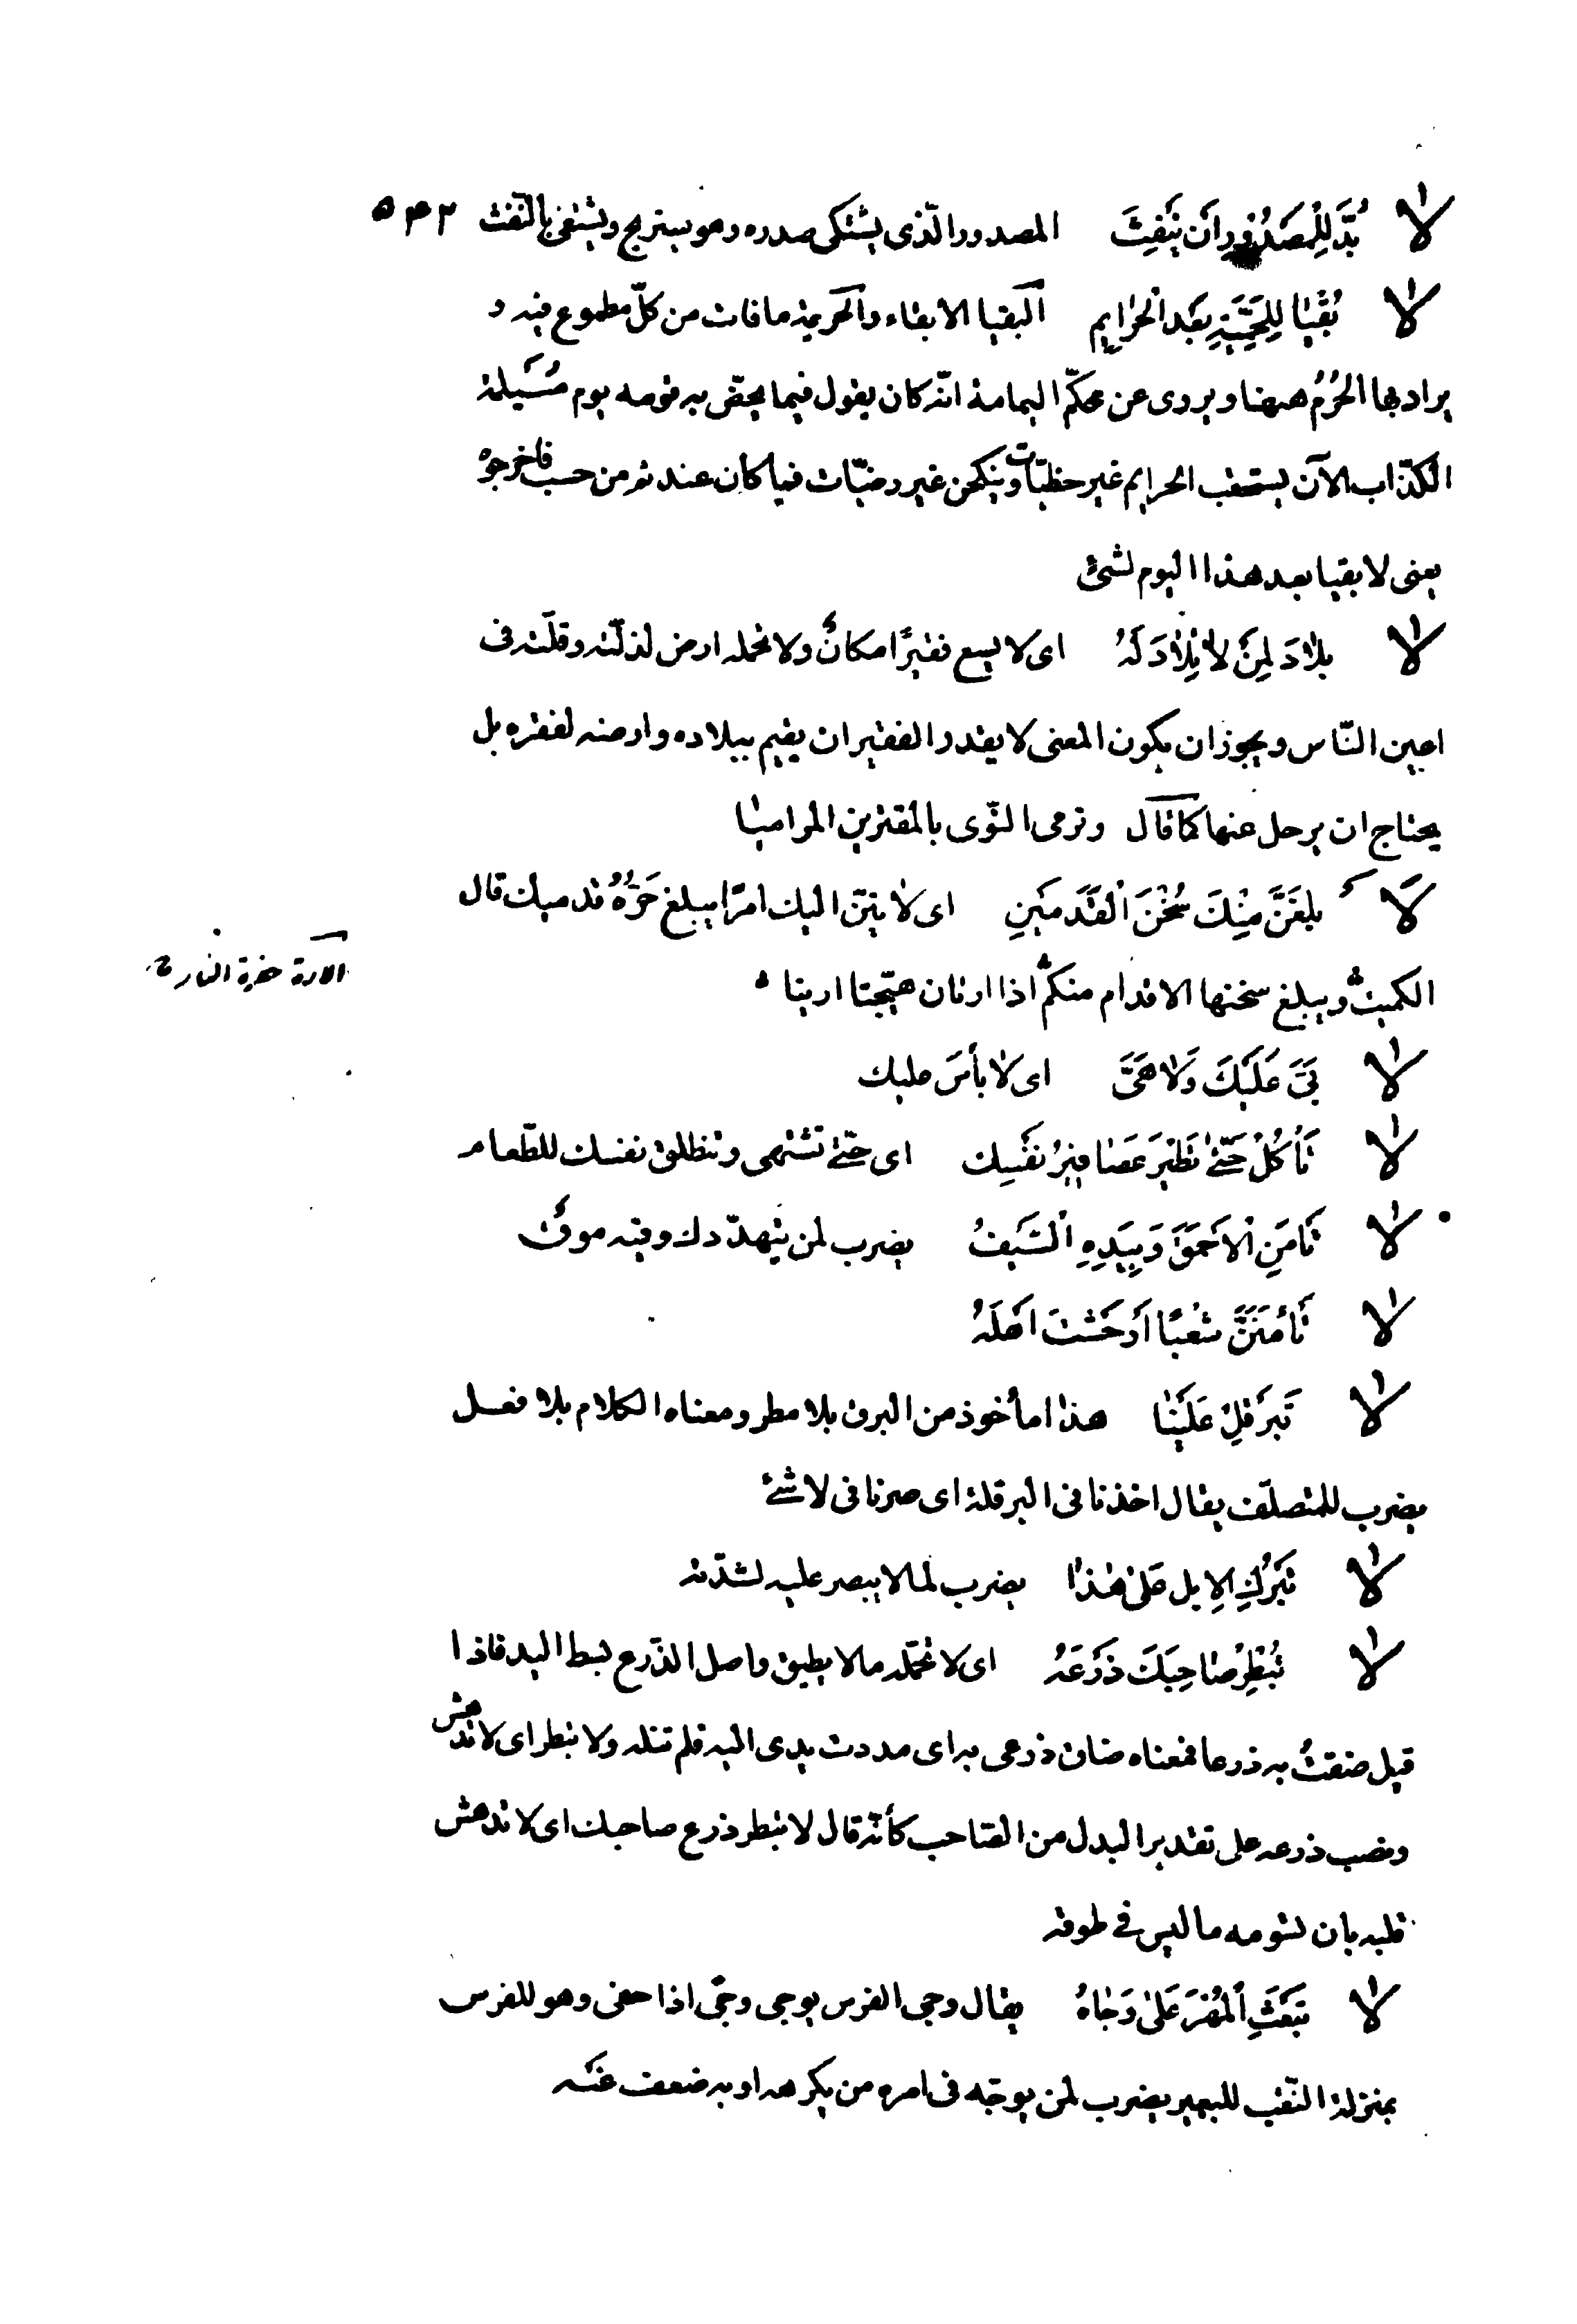 لا بُدَّ لِلْمَصْدُورِ اَنْ يَنْفِثَ المصدور الّذى يشتكى صدره وهو يستريح ويشتفى بالنّفث ٥٣٢
لا بُقْيَا لِلْحَمِيَّةِ بَعْدَ الْحَرَايِمِ البقيا الابقاء والحريمة مافات من كلّ مطموع فيه و
يراد بها الحُرُمُ ههنا ويروى عن محكّم اليمامة انّه كان يقول فيما يحضّ به قومه يوم مُسَيلمة
الكذّاب الآن يستحقب الحرايم غير حظيّات وينكحن غير رضيّات فما كان عندكم من حسب فاخرجوه
يعنى لا بقيا بعد هذا اليوم لشئ
لا بِلَادَ لِمَنْ لَا تِلَادَ لَهُ اى لا يسع فقيرًا مكانٌ ولا تحمله ارض لذلّته وقلّته فى
اعين النّاس ويجوز ان يكون المعنى لا يقدر الفقير ان يقيم ببلاده وارضه لفقره بل
يحتاج ان يرحل عنها كما قال وترمى النّوى بالمقترين المراميا
لَا يبلغَنَّ مِنْكَ سُخْنَ الْقَدَمَيْنِ اى لا يتينّ اليك امرًا يبلغ حَرُّهُ قدميك قال
الكميت ويبلغ سخنها الاقدام منكم اذا ارتان هيّجتا ارينا
الارة حفرة النار
لا بَىَّ عَلَيْكَ وَلا هَىَّ اى لا بأسَ عليك
لا تَأْكُلْ حَتّىٰ تَطِيرَ عَصَافِيرُ نَفْسِك اى حتّى تشتهى وتنطلق نفسك للطّعام
لا تَأْمَنِ الْاَحْمَقَ وَبِيَدِهِ الْسَّيْفُ يضرب لمن يتهدّدك وفيه موق
لا تَأْمَنَنَّ شَعْبًا اَوْحَشْتَ اَهْلَهُ
لا تُبَرْقِلْ عَلَيْنَا هذا مأخوذ من البرق بلا مطر ومعناه الكلام بلا فعل
يضرب للمتصلّف يقال اخذنا فى البرقلة اى صرنا فى لا شئ
لا تَبْرُكِ الاِبِل عَلىٰ هٰذَا يضرب لما لا يصبر عليه لشدّته
لا تُبْطِرْ صَاحِبَكَ ذَرْعَهُ اى لا تحمّله ما لا يطيق واصل الذّرع بسط اليد فاذا
قيل ضقتُ به ذرعا فمعناه ضاق ذرعى به اى مددت يدى اليه فلم تنله ولا تبطر اى لا تدهش
ونصب ذرعه على تقدير البدل من الصّاحب كأنّه قال لا تبطر ذرع صاحبك اى لا تدهش
قلبه بان تسومه ما ليس فى طوقه
لا تَبْعَثِ الْمُهْرَ عَلىٰ وَجَاهُ يقال وجى الفرس يوجى وجًى اذا حفى وهو للفرس
بمنزلة النّقب للبعير يضرب لمن يوجّه فى امره من يكرهه او به ضعف عنه